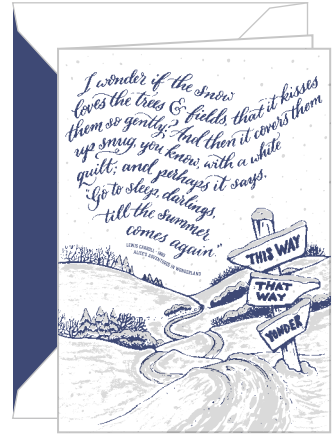 I wonder if the snow
loves the trees & fields, that it kisses
them so gently? And then it covers them
up snug, you know, with a white
quilt; and perhaps it says,
"Go to sleep, darlings,
till the summer
comes again."
LEWIS CARROLL
ALICE'S ADVENTURES IN WONDERLAND
THIS WAY
THAT
WAY
YONDER